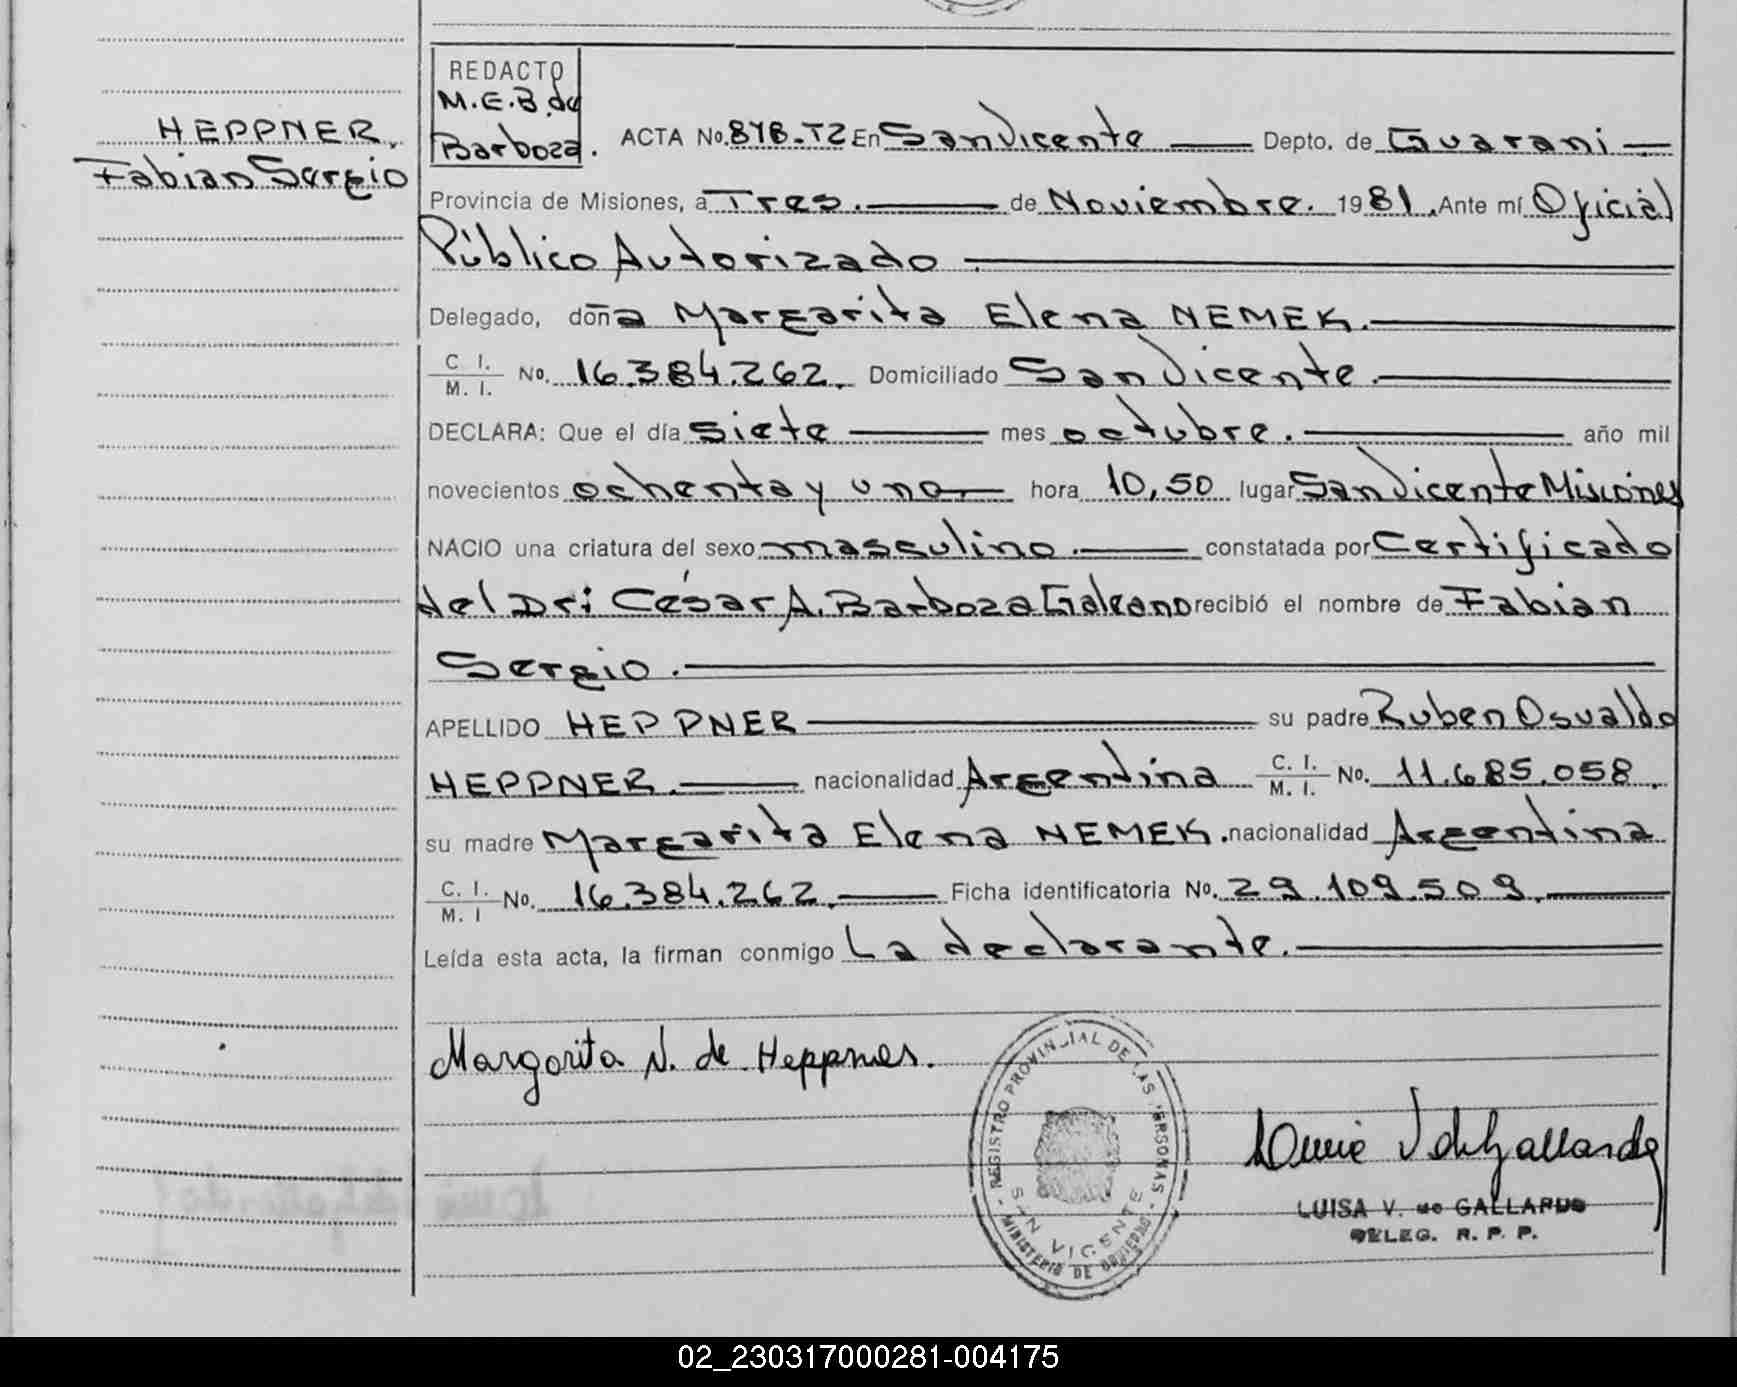 HEPPNER,
Fabian Sergio
REDACTO
M.E.B de
Barboza.
ACTA No. 878-T2 En San Vicente Depto. de Guarani
Provincia de Misiones, a Tres. de Noviembre. 1981. Ante mí Oficial
Público Autorizado
Delegado, doña Margarita Elena NEMEK.
C. I.
M. I. No. 16.384.262. Domiciliado San Vicente.
DECLARA: Que el día siete mes octubre. año mil
novecientos ochenta y uno hora 10,50 lugar San Vicente Misiones
NACIO una criatura del sexo masculino. constatada por Certificado
del Dr: César A. Barboza Galeano recibió el nombre de Fabian
Sergio.
APELLIDO HEPPNER su padre Ruben Osvaldo
HEPPNER. nacionalidad Argentina C. I.
M. I. No. 11.685.058.
su madre Margarita Elena NEMEK. nacionalidad Argentina
C. I.
M. I No. 16.384.262. Ficha identificatoria No. 29.109.509.
Leída esta acta, la firman conmigo La declarante.
Margarita N. de Heppner.
- REGISTRO PROVINCIAL DE LAS PERSONAS -
SAN VICENTE
MINISTERIO DE GOBIERNO
Luisa V de Gallardo
LUISA V. de GALLARDO
DELEG. R. P. P.
02_230317000281-004175